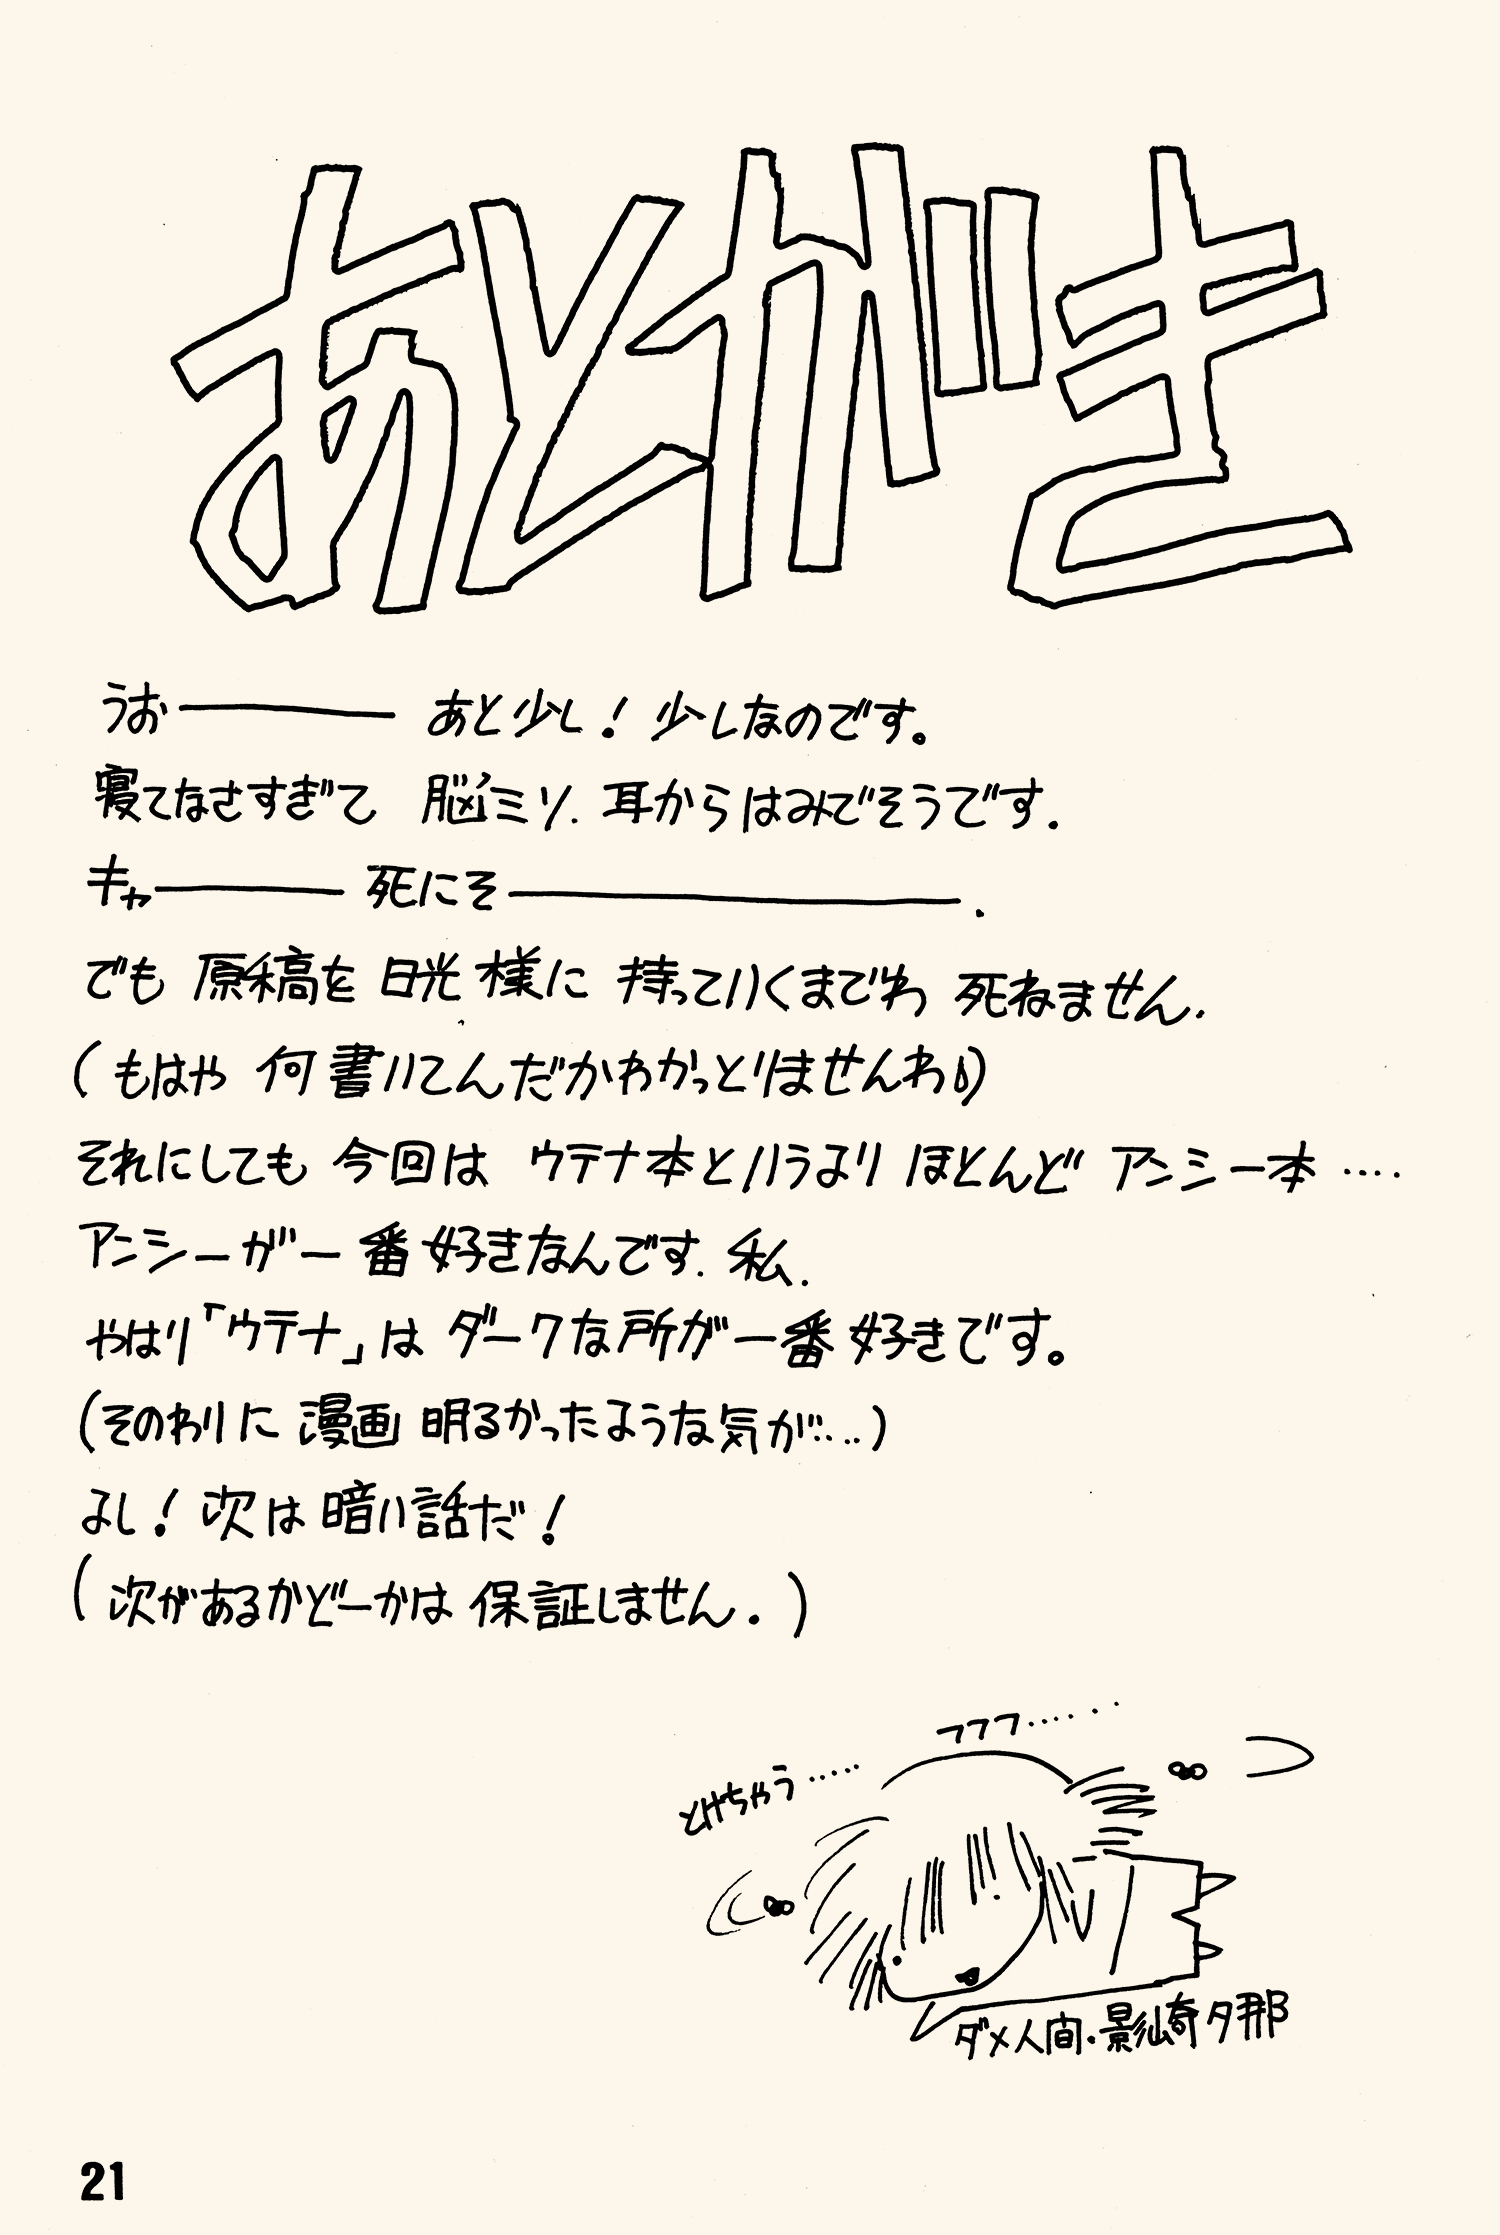 あとがき
うおーーー あと少し！ 少しなのです。
寝てなさすぎて 脳ミソ. 耳からはみでそうです.
キャーーー 死にそーーーーー.
でも 原稿を 日光様に 持っていくまでわ 死ねません.
(もはや 何書いてんだかわかっとりませんわ♪)
それにしても 今回は ウテナ本というより ほとんど アンシー本 ‥‥
アンシーが一番 好きなんです. 私.
やはり「ウテナ」は ダークな所が一番 好きです。
(そのわりに 漫画 明るかったような気が‥‥)
よし！ 次は 暗い話だ！
(次があるかどーかは 保証しません.)
フフフ‥‥‥
とけちゃう‥‥‥
ダメ人間・影崎夕那
21